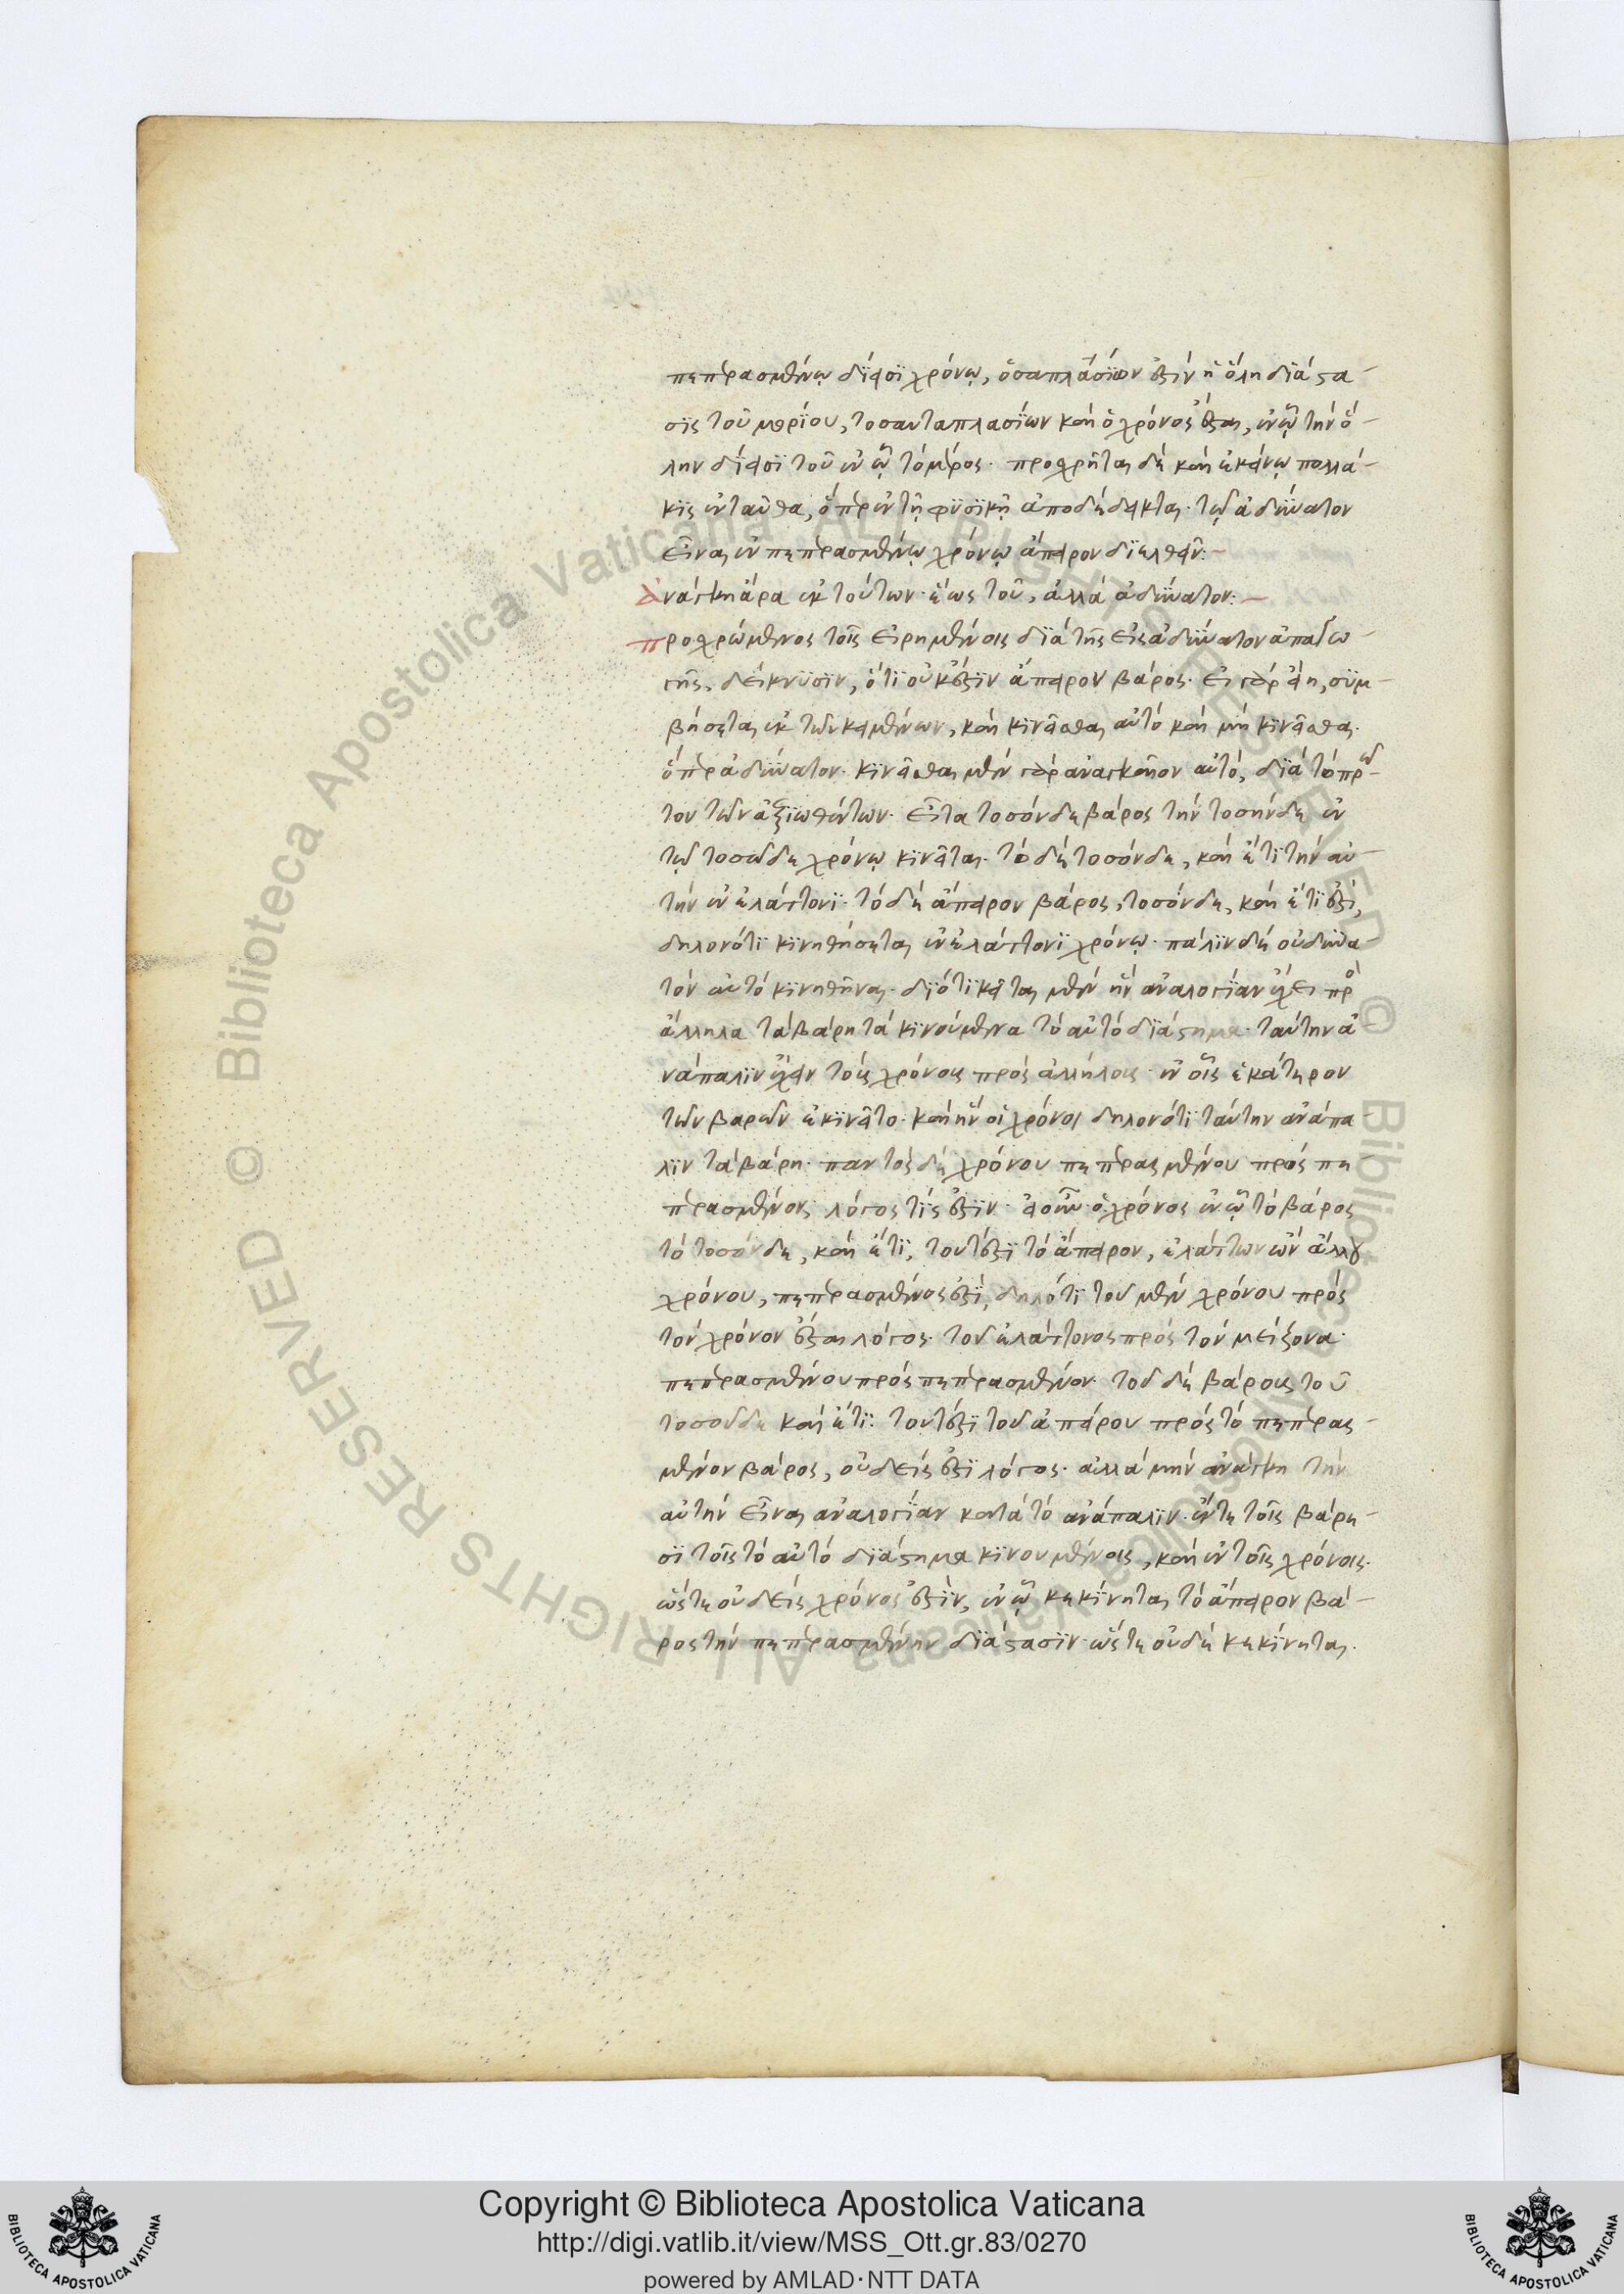 πεπερασμένῳ δίεισι χρόνῳ, ὁσαπλασίων ἐστὶν ἡ ὅλη διάστα-
σις τοῦ μορίου, τοσαυταπλασίων καὶ ὁ χρόνος ἔσται, ἐν ᾧ τὴν ὅ-
λην δίεισι τοῦ ἐν ᾧ τὸ μέρος. προσχρῆται δὲ καὶ ἐκείνῳ πολλά-
κις ἐνταῦθα, ὅπερ ἐν τῇ φυσικῇ ἀποδέδεικται. τῷ ἀδύνατον
εἶναι ἐν πεπερασμένῳ χρόνῳ ἄπειρον διελθεῖν:-
ἀνάγκη ἄρα ἐκ τούτων. ἕως τοῦ, ἀλλὰ ἀδύνατον:-
προσχρώμενος τοῖς εἰρημένοις διὰ τῆς εἰς ἀδύνατον ἀπαγω-
γῆς, δείκνυσιν, ὅτι οὐκ ἔστιν ἄπειρον βάρος. εἰ γὰρ εἴη, συμ-
βήσεται ἐκ τῶν κειμένων, καὶ κινεῖσθαι αὐτὸ καὶ μὴ κινεῖσθαι.
ὅπερ ἀδύνατον. κινεῖσθαι μὲν γὰρ ἀναγκαῖον αὐτό, διὰ τὸ πρῶ-
τον τῶν ἀξιωθέντων. εἶτα τοσόνδε βάρος τὴν τοσήνδε ἐν
τῷ τοσῷδε χρόνῳ κινεῖται. τὸ δὲ τοσόνδε, καὶ ἔτι τὴν αὐ-
τὴν ἐν ἐλάττονι. τὸ δὲ ἄπειρον βάρος, τοσόνδε, καὶ ἔτι ἐστί,
δηλονότι κινηθήσεται ἐν ἐλάττονι χρόνῳ. πάλιν δὲ οὐ δυνα-
τὸν αὐτὸ κινηθῆναι. διότι κεῖται μὲν ἣν ἀναλογίαν ἔχει πρὸς
ἄλληλα τὰ βάρη τὰ κινούμενα τὸ αὐτὸ διάστημα. ταύτην ἀ
νάπαλιν ἔχειν τοὺς χρόνους πρὸς ἀλλήλους. ἐν οἷς ἑκάτερον
τῶν βαρῶν ἐκινεῖτο. καὶ ἣν οἱ χρόνοι δηλονότι ταύτην ἀνάπα-
λιν τὰ βάρη. παντὸς δὲ χρόνου πεπερασμένου πρὸς πε
περασμένον, λόγος τίς ἐστιν. εἰ οὖν ὁ χρόνος ἐν ᾧ τὸ βάρος
τὸ τοσόνδε, καὶ ἔτι, τουτέστι τὸ ἄπειρον, ἐλάττων ὢν ἄλλου
χρόνου, πεπερασμένος ἐστί, δηλότι τοῦ μὲν χρόνου πρὸς
τὸν χρόνον ἔσται λόγος. τοῦ ἐλάττονος πρὸς τὸν μείζονα.
πεπερασμένου πρὸς πεπερασμένον. τοῦ δὲ βάρους τοῦ
τοσοῦδε καὶ ἔτι. τουτέστι τοῦ ἀπείρου πρὸς τὸ πεπερασ-
μένον βάρος, οὐδείς ἐστι λόγος. ἀλλὰ μὴν ἀνάγκη τὴν
αὐτὴν εἶναι ἀναλογίαν κατὰ τὸ ἀνάπαλιν. ἔν τε τοῖς βάρε-
σι τοῖς τὸ αὐτὸ διάστημα κινουμένοις, καὶ ἐν τοῖς χρόνοις.
ὥστε οὐδεὶς χρόνος ἐστίν, ἐν ᾧ κεκίνηται τὸ ἄπειρον βά-
ρος τὴν πεπερασμένην διάστασιν. ὥστε οὐδὲ κεκίνηται.
© Biblioteca Apostolica Vaticana ALL RIGHTS RESERVED
© Biblioteca Apostolica Vaticana ALL RIGHTS RESERVED
BIBLIOTECA APOSTOLICA VATICANA
Copyright © Biblioteca Apostolica Vaticana
http://digi.vatlib.it/view/MSS_Ott.gr.83/0270
powered by AMLAD·NTT DATA
BIBLIOTECA APOSTOLICA VATICANA